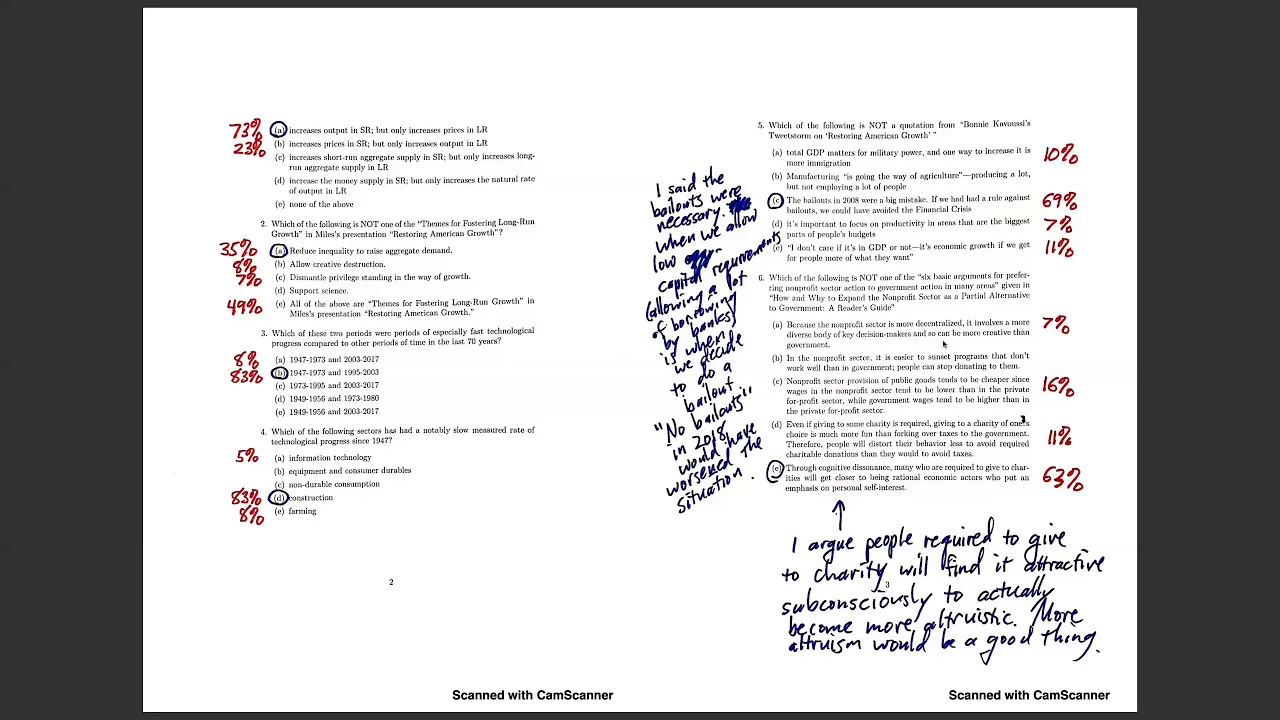 73% (a) increases output in SR; but only increases prices in LR
23% (b) increases prices in SR; but only increases output in LR
(c) increases short-run aggregate supply in SR; but only increases long-
run aggregate supply in LR
(d) increase the money supply in SR; but only increases the natural rate
of output in LR
(e) none of the above
2. Which of the following is NOT one of the "Themes for Fostering Long-Run
Growth" in Miles's presentation "Restoring American Growth"?
35% (a) Reduce inequality to raise aggregate demand.
8% (b) Allow creative destruction.
7% (c) Dismantle privilege standing in the way of growth.
(d) Support science.
49% (e) All of the above are "Themes for Fostering Long-Run Growth" in
Miles's presentation "Restoring American Growth."
3. Which of these two periods were periods of especially fast technological
progress compared to other periods of time in the last 70 years?
8% (a) 1947-1973 and 2003-2017
83% (b) 1947-1973 and 1995-2003
(c) 1973-1995 and 2003-2017
(d) 1949-1956 and 1973-1980
(e) 1949-1956 and 2003-2017
4. Which of the following sectors has had a notably slow measured rate of
technological progress since 1947?
5% (a) information technology
(b) equipment and consumer durables
(c) non-durable consumption
83% (d) construction
8% (e) farming
2
Scanned with CamScanner
I said the
bailouts were
necessary.
When we allow
low
capital requirements
(allowing a lot
of borrowing
by banks)
is when
we decide
to do a
bailout.
"No bailouts"
in 2018
would have
worsened the
situation.
5. Which of the following is NOT a quotation from "Bonnie Kavoussi's
Tweetstorm on 'Restoring American Growth' "
(a) total GDP matters for military power, and one way to increase it is
more immigration 10%
(b) Manufacturing "is going the way of agriculture"—producing a lot,
but not employing a lot of people
(c) The bailouts in 2008 were a big mistake. If we had had a rule against 69%
bailouts, we could have avoided the Financial Crisis
(d) it's important to focus on productivity in areas that are the biggest 7%
parts of people's budgets
(e) "I don't care if it's in GDP or not—it's economic growth if we get 11%
for people more of what they want"
6. Which of the following is NOT one of the "six basic arguments for prefer-
ring nonprofit sector action to government action in many areas" given in
"How and Why to Expand the Nonprofit Sector as a Partial Alternative
to Government: A Reader's Guide"
(a) Because the nonprofit sector is more decentralized, it involves a more 7%
diverse body of key decision-makers and so can be more creative than
government.
(b) In the nonprofit sector, it is easier to sunset programs that don't
work well than in government; people can stop donating to them.
(c) Nonprofit sector provision of public goods tends to be cheaper since 16%
wages in the nonprofit sector tend to be lower than in the private
for-profit sector, while government wages tend to be higher than in
the private for-profit sector.
(d) Even if giving to some charity is required, giving to a charity of one's
choice is much more fun than forking over taxes to the government. 11%
Therefore, people will distort their behavior less to avoid required
charitable donations than they would to avoid taxes.
(e) Through cognitive dissonance, many who are required to give to char-
ities will get closer to being rational economic actors who put an 63%
emphasis on personal self-interest.
I argue people required to give
to charity will find it attractive
3
subconsciously to actually
become more altruistic. More
altruism would be a good thing.
Scanned with CamScanner